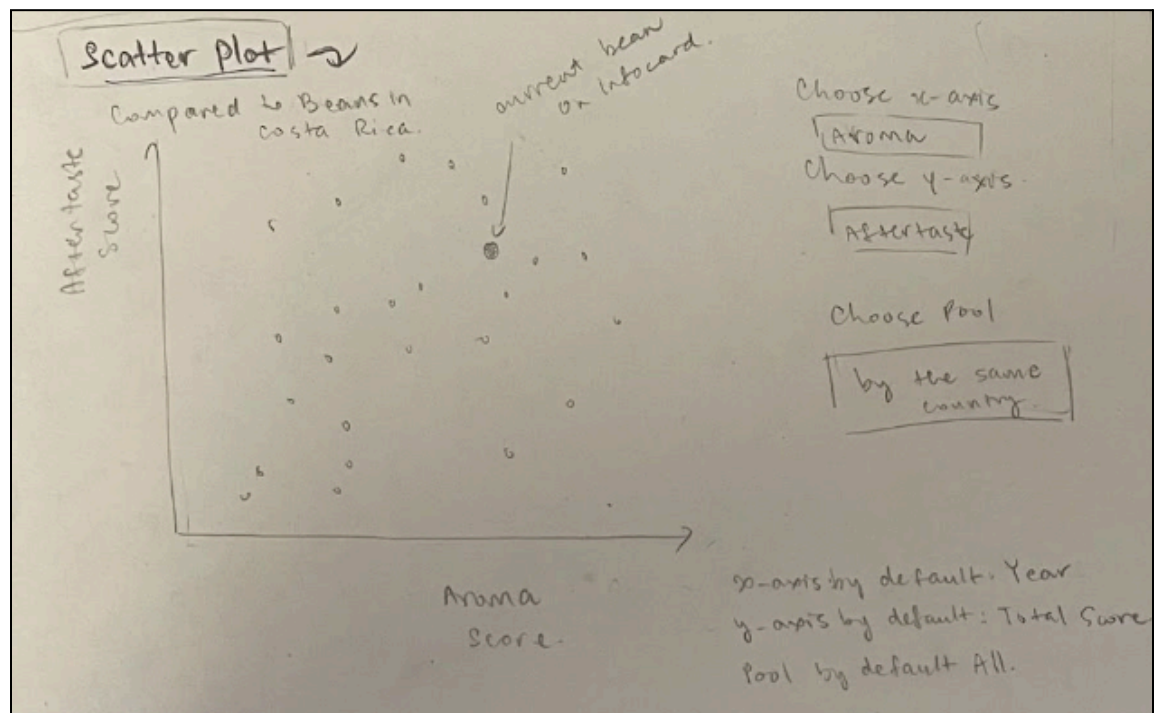 Scatter Plot
Compared to Beans in
Costa Rica.
current bean
on infocard.
Aftertaste
Score
Aroma
Score.
Choose x-axis
Aroma
Choose y-axis.
Aftertaste
Choose Pool
by the same
country.
x-axis by default: Year
y-axis by default: Total Score
Pool by default All.